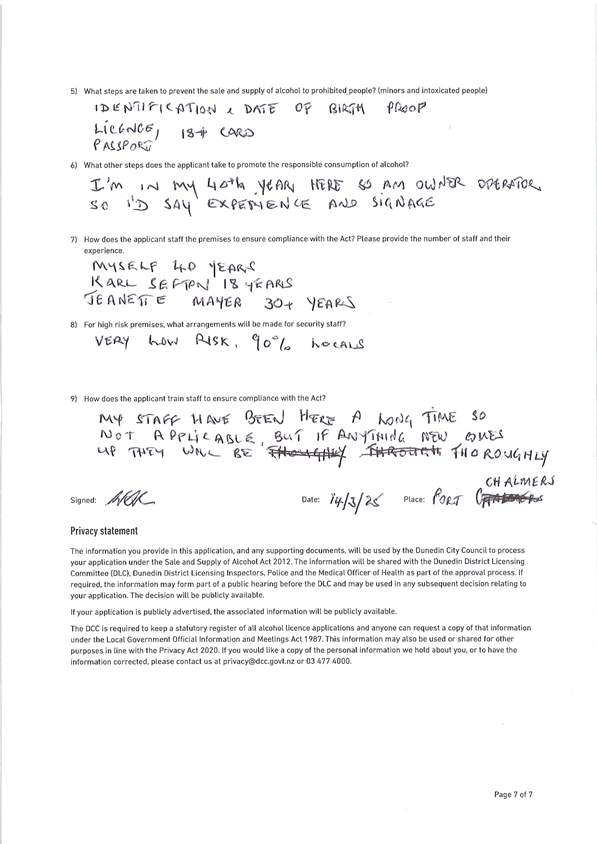 5) What steps are taken to prevent the sale and supply of alcohol to prohibited people? (minors and intoxicated people)
IDENTIFICATION & DATE OF BIRTH PROOF
LICENCE, 18+ CARD
PASSPORT
6) What other steps does the applicant take to promote the responsible consumption of alcohol?
I'M IN MY 40th YEAR HERE SO AM OWNER OPERATOR,
SO I'D SAY EXPERIENCE AND SIGNAGE
7) How does the applicant staff the premises to ensure compliance with the Act? Please provide the number of staff and their
experience.
MYSELF 40 YEARS
KARL SEFTON 18 YEARS
JEANETTE MAYER 30+ YEARS
8) For high risk premises, what arrangements will be made for security staff?
VERY LOW RISK, 90% LOCALS
9) How does the applicant train staff to ensure compliance with the Act?
MY STAFF HAVE BEEN HERE A LONG TIME SO
NOT APPLICABLE, BUT IF ANYTHING NEW COMES
UP THEY WILL BE THOROUGHLY
CHALMERS
Signed: Date: 14/3/25 Place: PORT
Privacy statement
The information you provide in this application, and any supporting documents, will be used by the Dunedin City Council to process
your application under the Sale and Supply of Alcohol Act 2012. The information will be shared with the Dunedin District Licensing
Committee (DLC), Dunedin District Licensing Inspectors, Police and the Medical Officer of Health as part of the approval process. If
required, the information may form part of a public hearing before the DLC and may be used in any subsequent decision relating to
your application. The decision will be publicly available.
If your application is publicly advertised, the associated information will be publicly available.
The DCC is required to keep a statutory register of all alcohol licence applications and anyone can request a copy of that information
under the Local Government Official Information and Meetings Act 1987. This information may also be used or shared for other
purposes in line with the Privacy Act 2020. If you would like a copy of the personal information we hold about you, or to have the
information corrected, please contact us at privacy@dcc.govt.nz or 03 477 4000.
Page 7 of 7